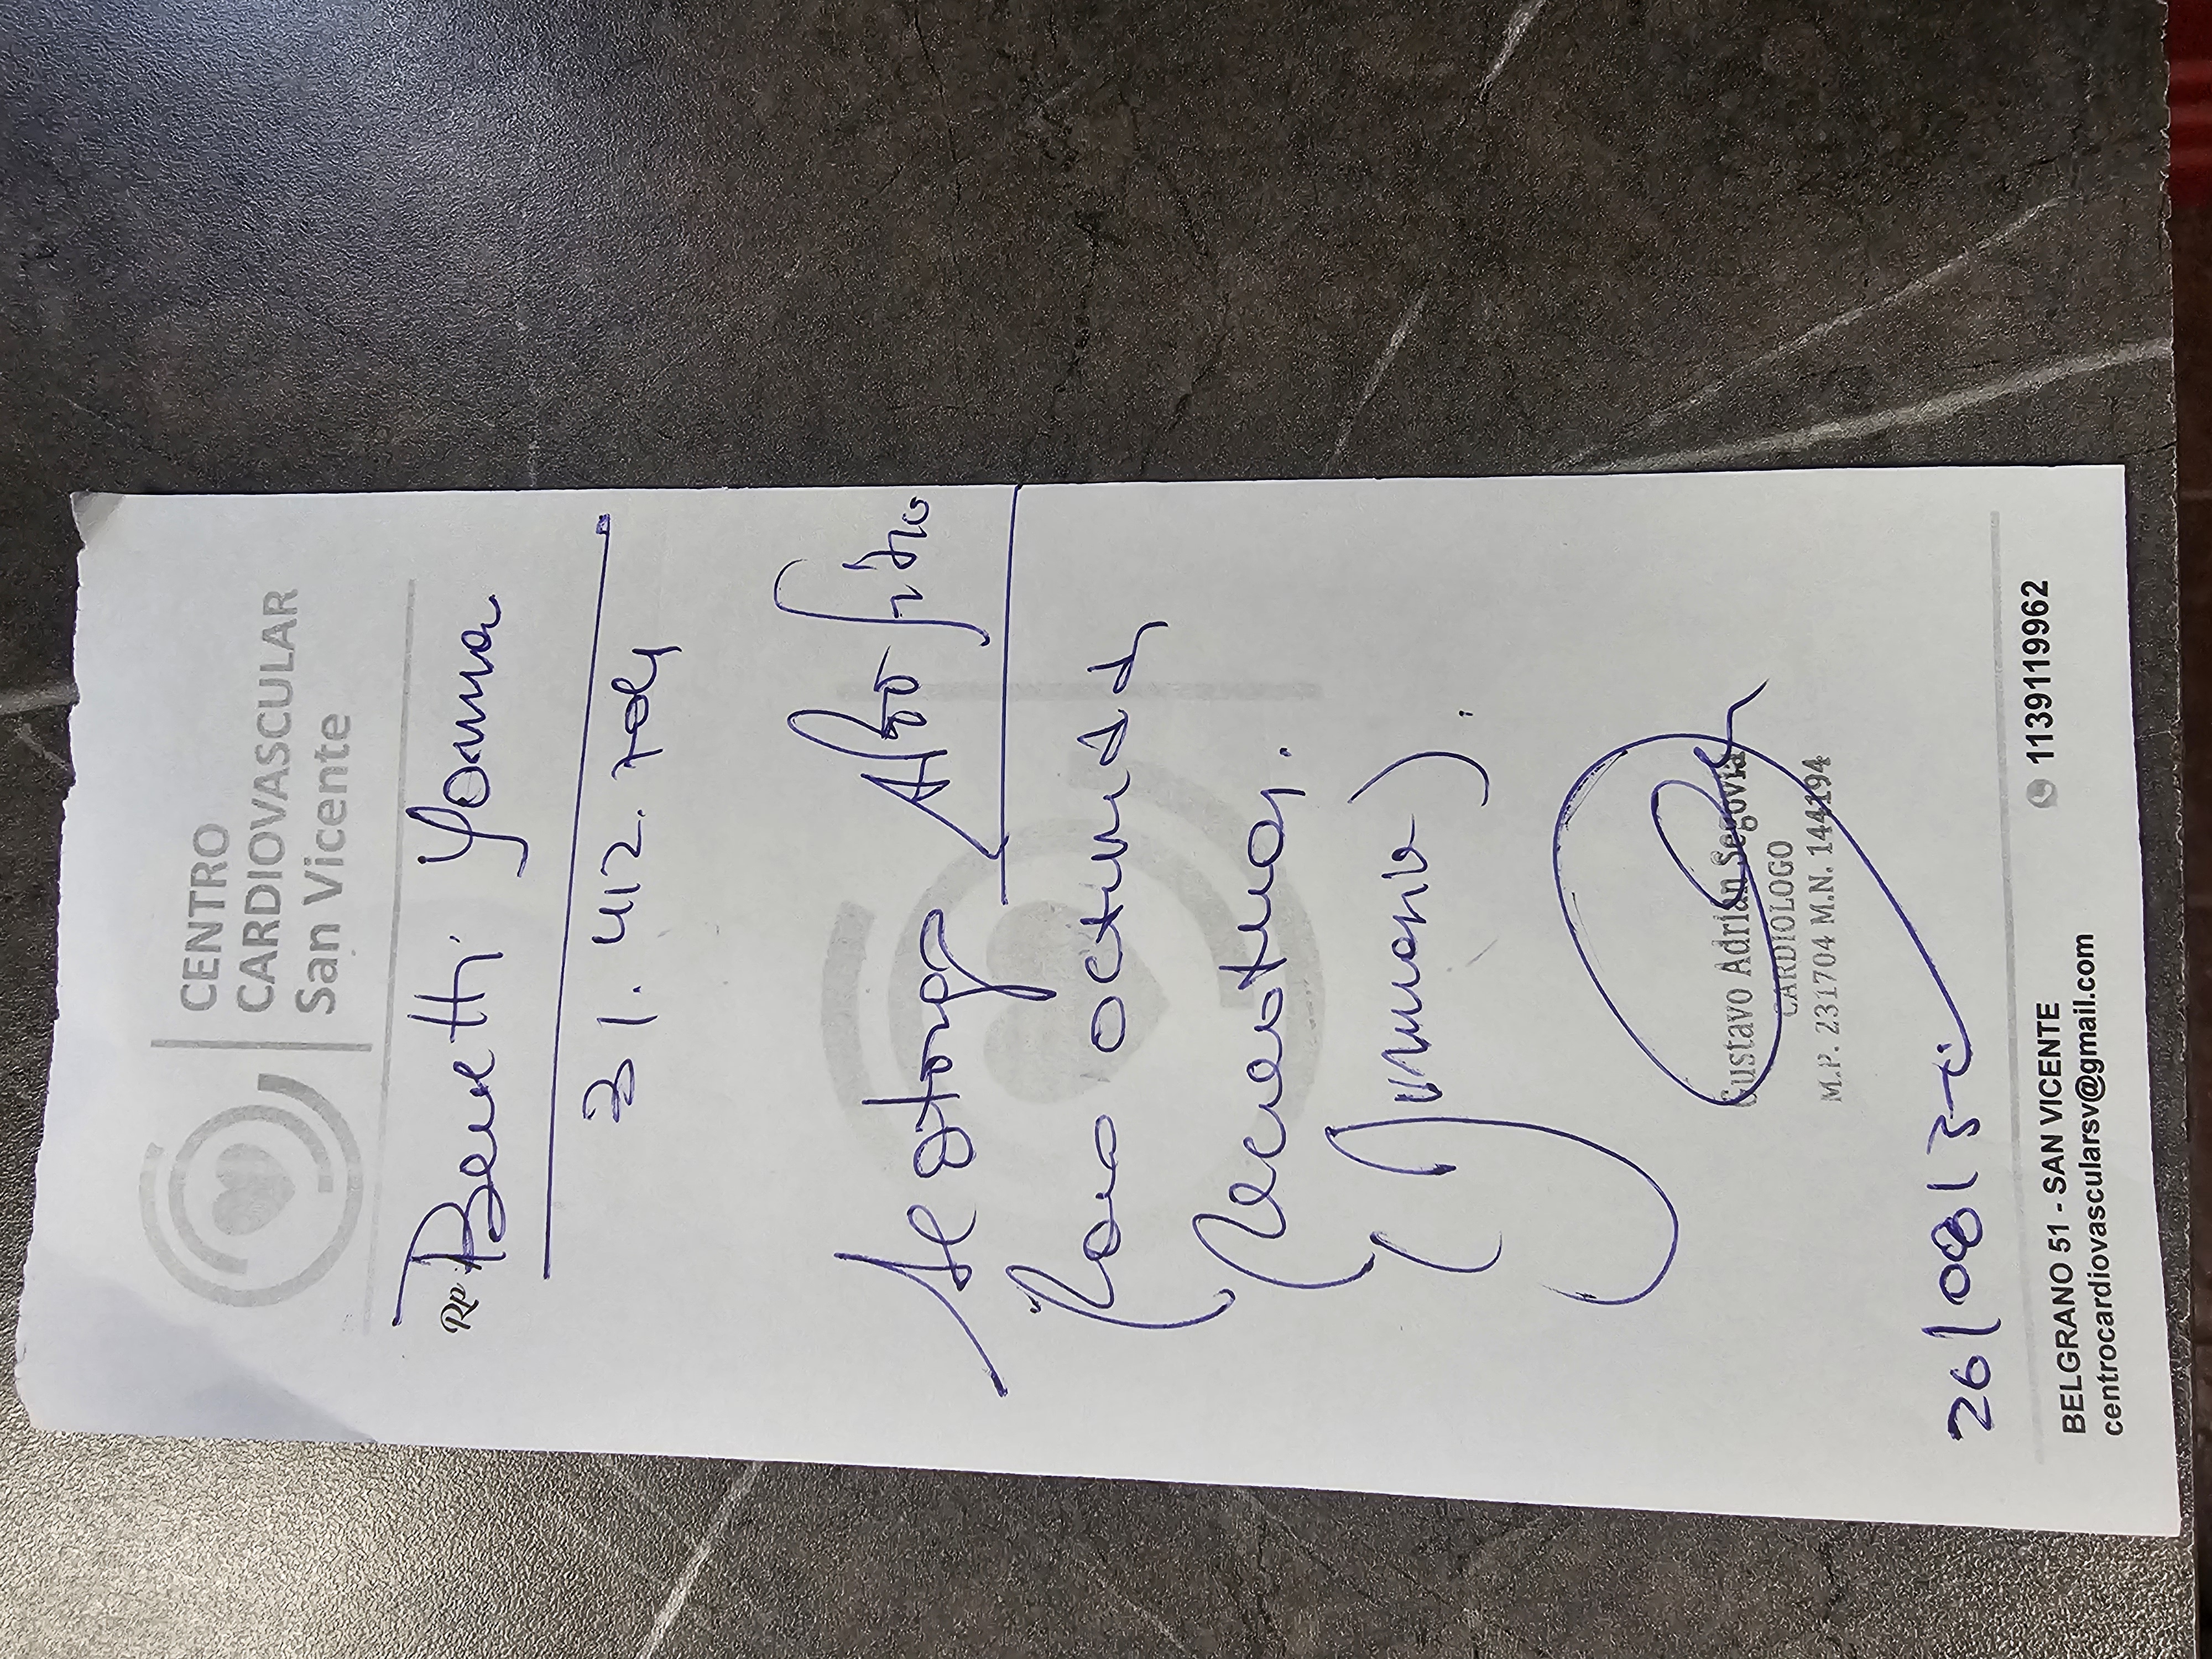 CENTRO
CARDIOVASCULAR
San Vicente
Rp. Benetti Yanina
31.412.704
Se otorga Apto físico
para actividad
recreativa.
(gimnasio).
Gustavo Adrián Segovia
CARDIOLOGO
M.P. 231704 M.N. 144194
26/08/25
BELGRANO 51 - SAN VICENTE
1139119962
centrocardiovascularsv@gmail.com